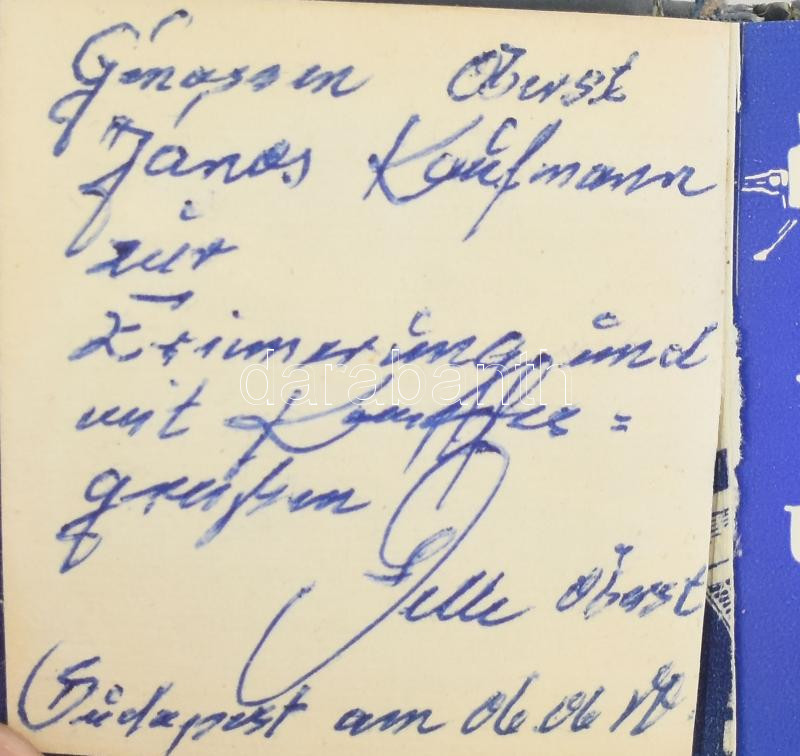 Genossen Oberst
János Kaufmann
zur
Erinnerung und
mit Kampfes=
grüßen
Oberst
Budapest am 06.06
darabanth